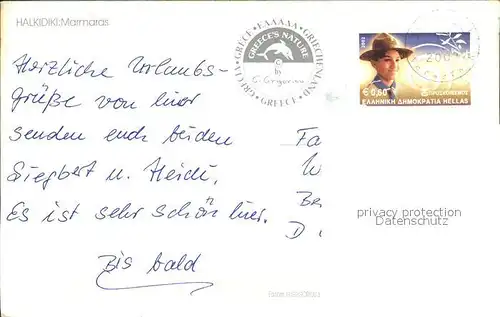 HALKIDIKI: Marmaras
Herzliche Urlaubs-
grüße von hier
senden euch beiden
Siegbert u. Heidi.
Es ist sehr schön hier.
Bis bald
GREECE • ΕΛΛΑΔΑ • GRIECHENLAND • GREECE •
GREECE'S NATURE
by
2002
€ 0,60 ΠΡΟΣΚΟΠΙΣΜΟΣ
ΕΛΛΗΝΙΚΗ ΔΗΜΟΚΡΑΤΙΑ HELLAS
200
Fa
W
Be
D
privacy protection
Datenschutz